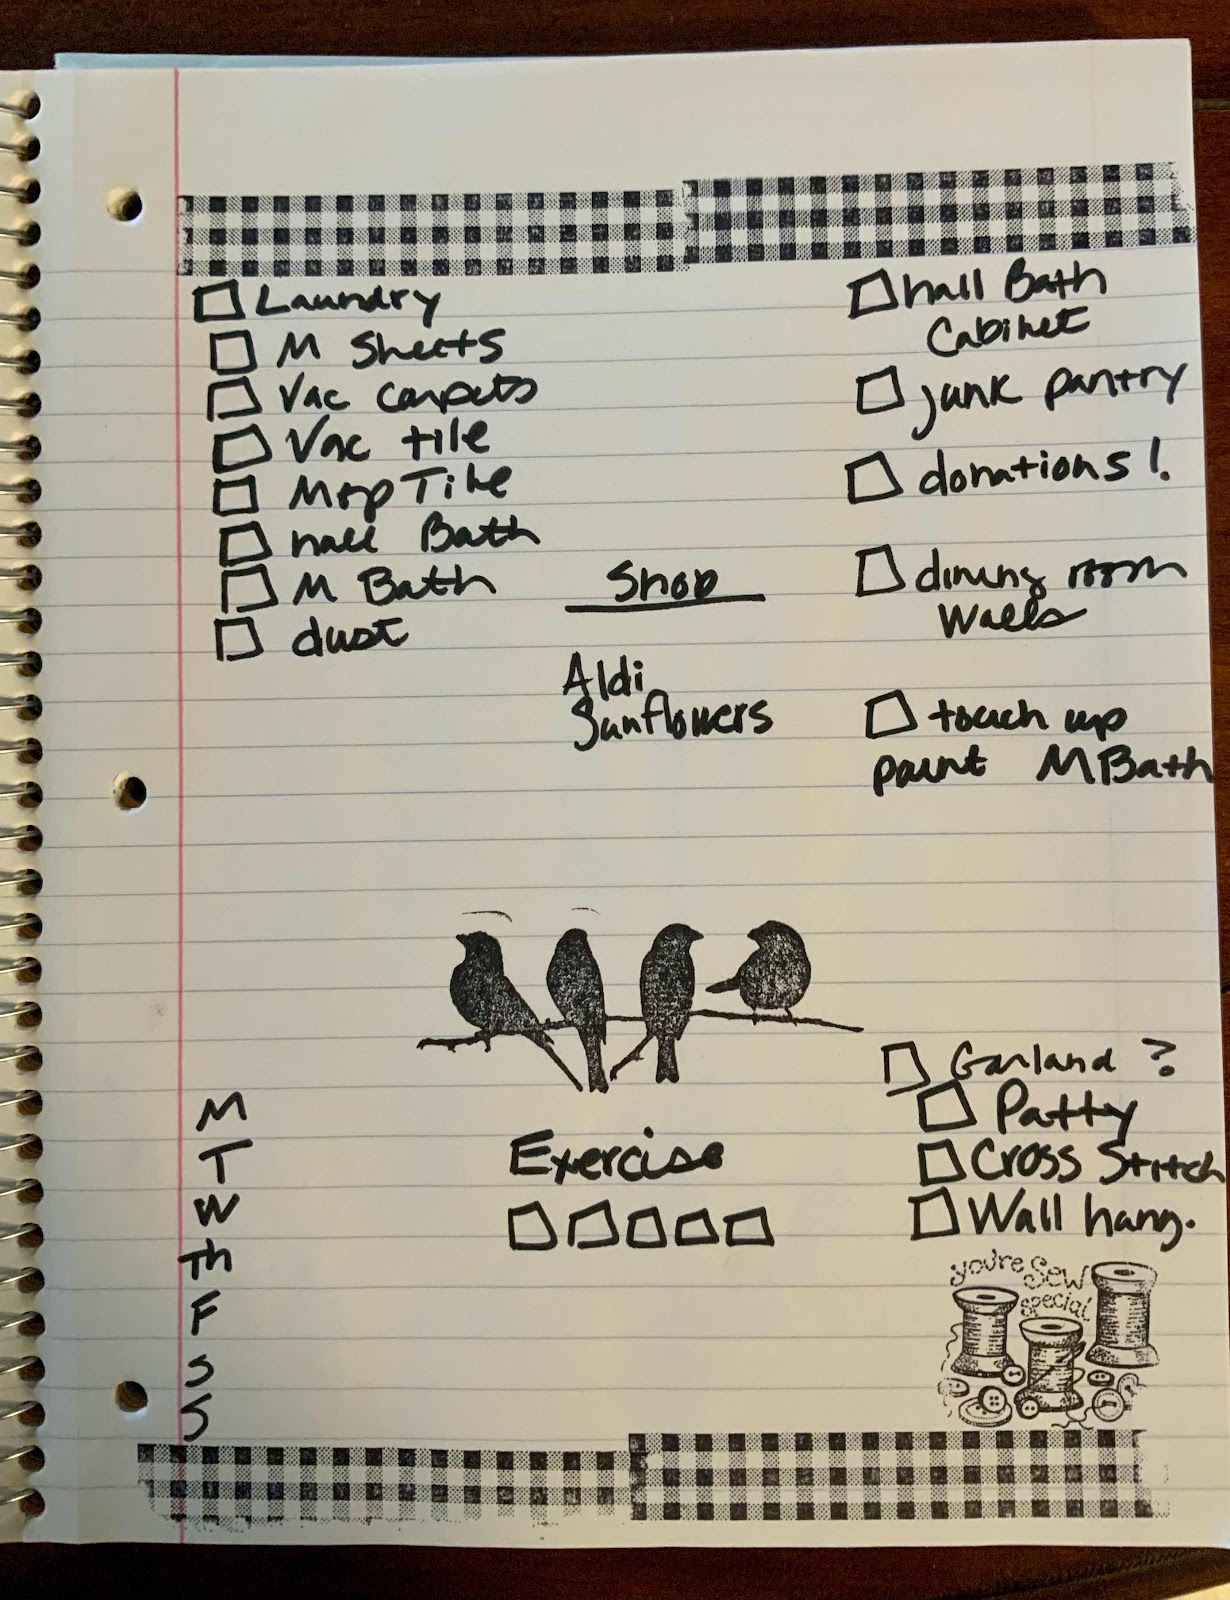 Laundry
M Sheets
Vac carpets
Vac tile
Mop Tile
hall Bath
M Bath
dust
Shop
Aldi
Sunflowers
hall Bath
Cabinet
junk pantry
donations!
dining room
Walls
touch up
paint M Bath
Garland ?
Patty
Cross Stitch
Wall hang.
Exercise
M
T
W
Th
F
S
S
you're Sew
Special